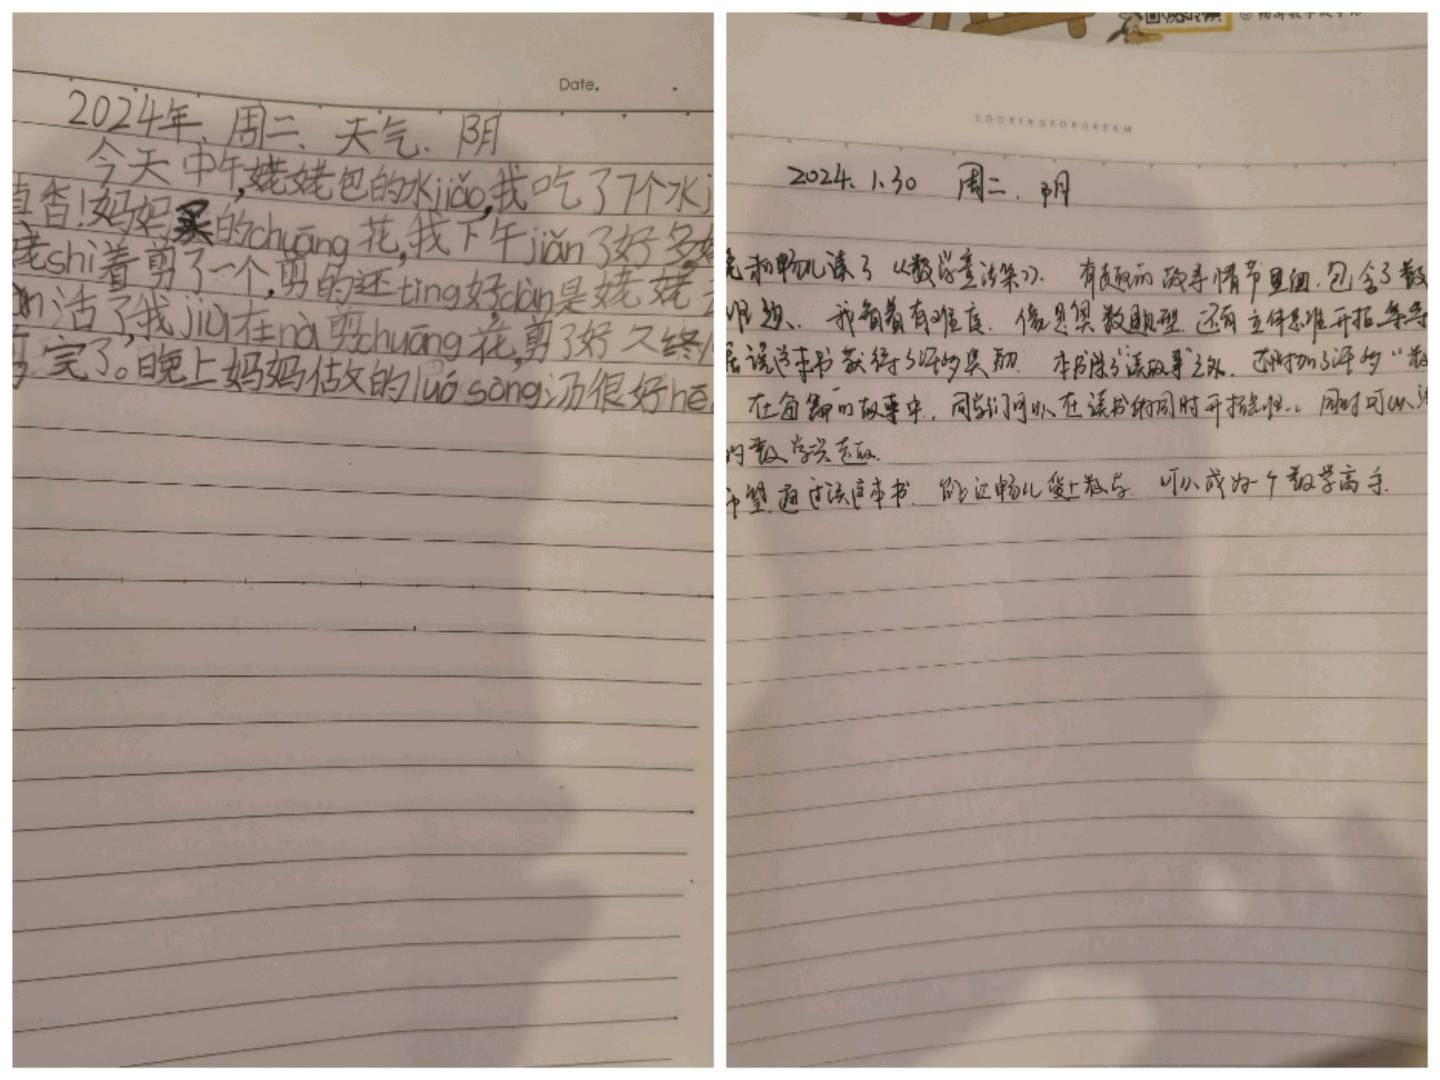 Date.
2024年、周二、天气、阴
今天中午,姥姥包的水jiǎo,我吃了7个水
香!妈妈买的chuāng花,我下午jiǎn了好多
姥shì着剪了一个,剪的还tǐng好,dàn是姥姥
活了,我jiù在nà剪chuāng花,剪了好久终
完了。晚上妈妈做的luó sòng汤很好hē
LOOKINGFORDREAM
2024.1.30 周二. 阴
和畅儿读了《数学童话集》. 有趣的故事情节里面,包含了数
难题、我看着有难度. 像 数 题型. 还有立体思维开拓等等
据说这本书获得了许多奖励. 本书除了"读故事"之外. 还增加了许多"数
在每篇的故事中. 同学们可以在读书的同时开拓思维.. 同时可以
的数学兴趣.
希望通过读这本书. 能让畅儿爱上数学 可以成为一个数学高手.